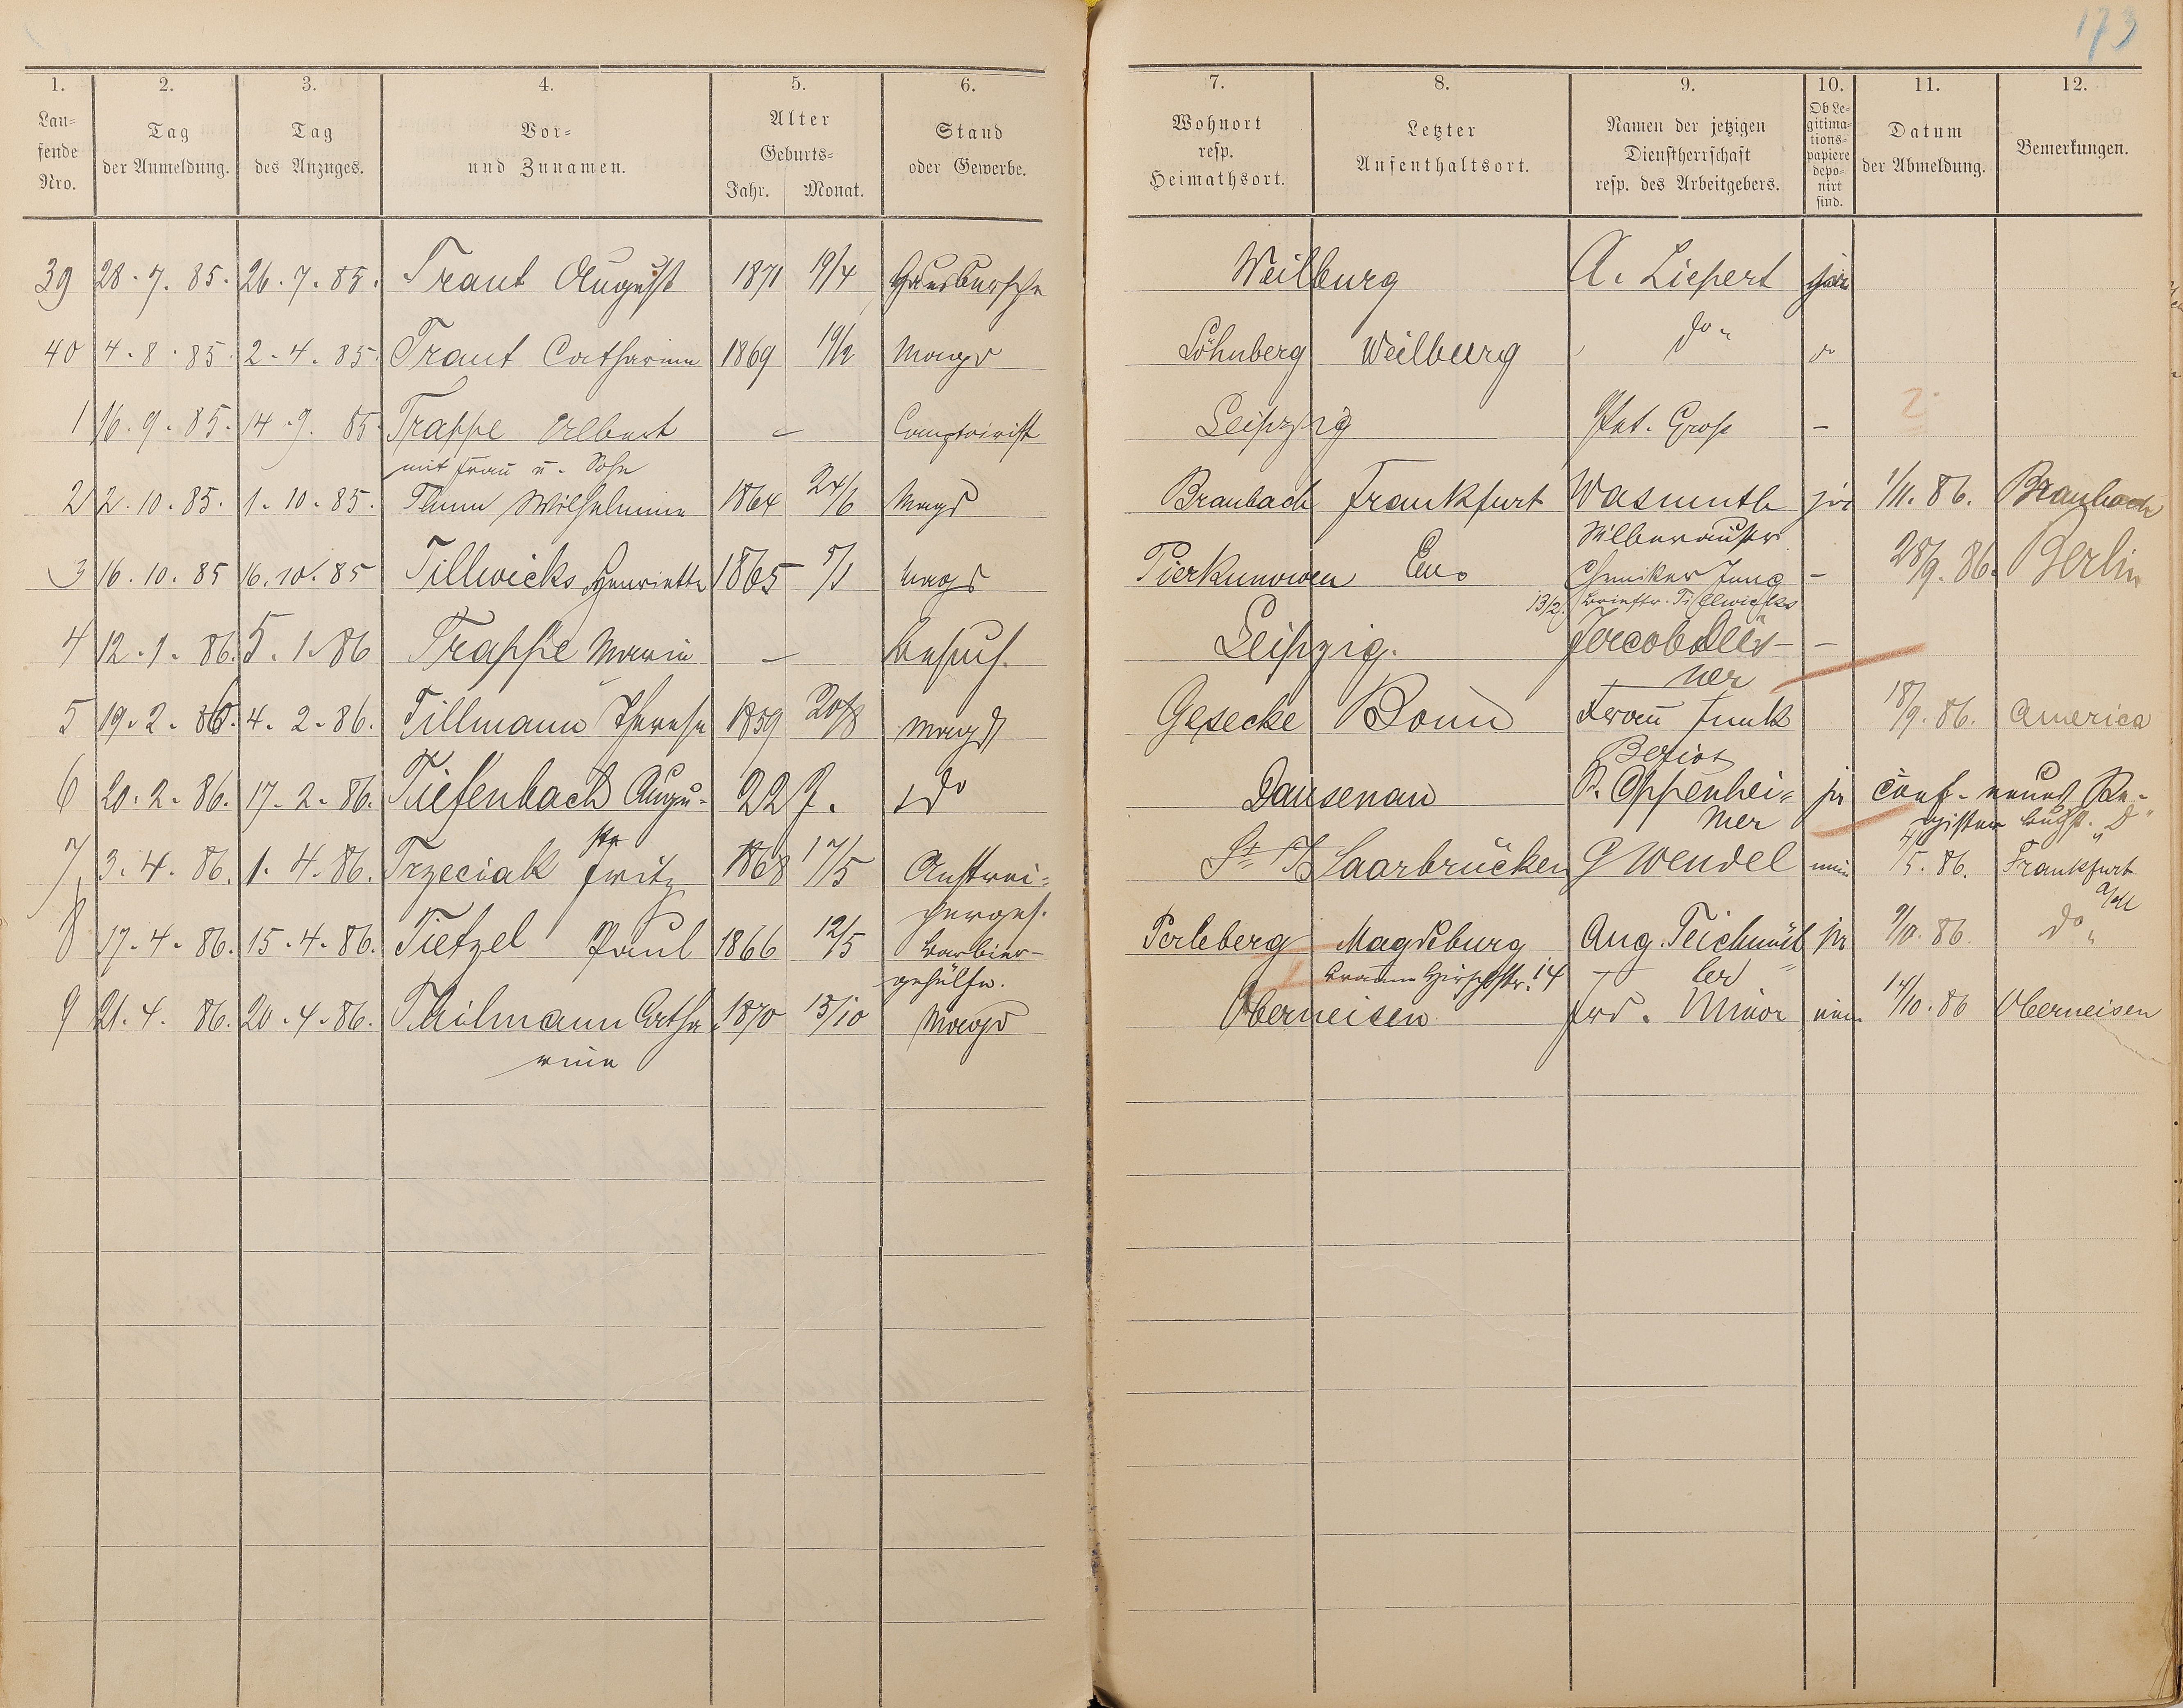 173
1. 2. 3. 4. 5. 6. 7. 8. 9. 10. 11. 12.
Lau=
fende
Nro.
Tag
der Anmeldung.
Tag
des Anzuges.
Vor=
und Zunamen.
Alter
Geburts=
Jahr. Monat.
Stand
oder Gewerbe.
Wohnort
resp.
Heimathsort.
Letzter
Aufenthaltsort.
Namen der jetzigen
Dienstherrschaft
resp. des Arbeitgebers.
Ob Le=
gitima=
tions=
papiere
depo=
nirt
sind.
Datum
der Abmeldung.
Bemerkungen.
39 28. 7. 85. 26. 7. 85. Traut August 1871 19/4 Hausbursche Weilburg A. Liepert
40 4. 8. 85. 2. 4. 85. Traut Catharine 1869 Magd Löhnberg Weilburg do "
1 16. 9. 85. 14. 9. 85. Trappe Albert — Comptoirist Leipzig Pet. Groß —
mit Frau u. Sohn
2 2. 10. 85. 1. 10. 85. Wilhelmine 1864 24/6 Magd Braubach Frankfurt Wasmuth ja 1/11. 86. Braubach
Silberaustr.
3 16. 10. 85 16. 10. 85 Tillwicks Henriette 1865 5/1 Magd Pierkunowen Ems Chemiker Jung — 28/9. 86. Berlin
13/2. Brieftr. Tillwicks
4 12. 1. 86. 5. 1. 86 Trappe Marie — Leipzig. Jacob —
ner
5 19. 2. 86. 4. 2. 86. Tillmann Therese 1859 20/8 Magd Gesecke Bonn Frau Funk 18/9. 86. America
6 20. 2. 86. 17. 2. 86. Tiefenbach Augu- 22 J. do Dausenau B. Oppenhei= ja conf. neues Re-
ste mer gister Buchst. "D"
7 3. 4. 86. 1. 4. 86. Trzeciak Fritz 1868 17/5 Anstrei= St. Saarbrücken G Wendel nein 4/5. 86. Frankfurt
cherges. a/M
8 17. 4. 86. 15. 4. 86. Tietzel Paul 1866 12/5 Barbier- Perleberg Magdeburg Aug. Teichmül ja 9/10. 86. do "
gehülfe. 14 ler
9 21. 4. 86. 20. 4. 86. Thilmann Catha 1870 13/10 Magd Oberneisen Frd. Minor nein 14/10. 86 Oberneisen
rine